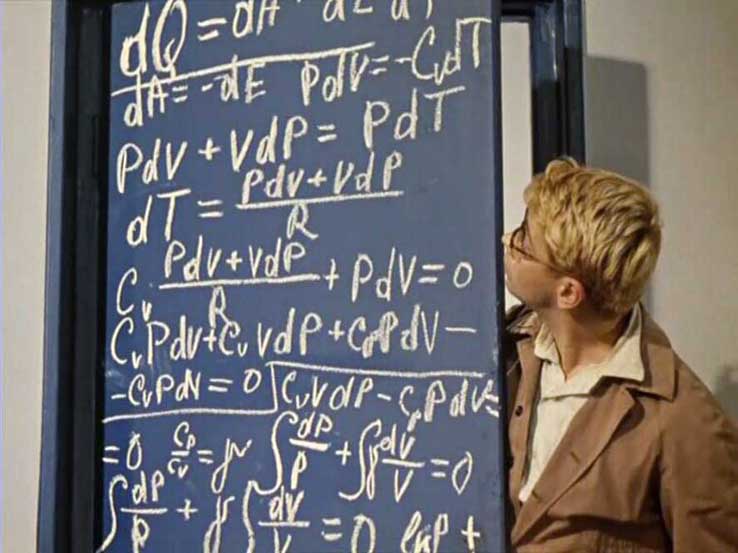 dQ = dA dE dT
dA = -dE PdV = -CvdT
PdV + VdP = PdT
dT = PdV + VdP / R
Cv PdV + VdP / R + PdV = 0
CvPdV + CvVdP + CpPdV -
- CvPdV = 0 CvVdP - CpPdV =
= 0 Cp / Cv = γ ∫ dP / P + ∫ γ dV / V = 0
∫ dP / P + γ ∫ dV / V = 0 lnP +